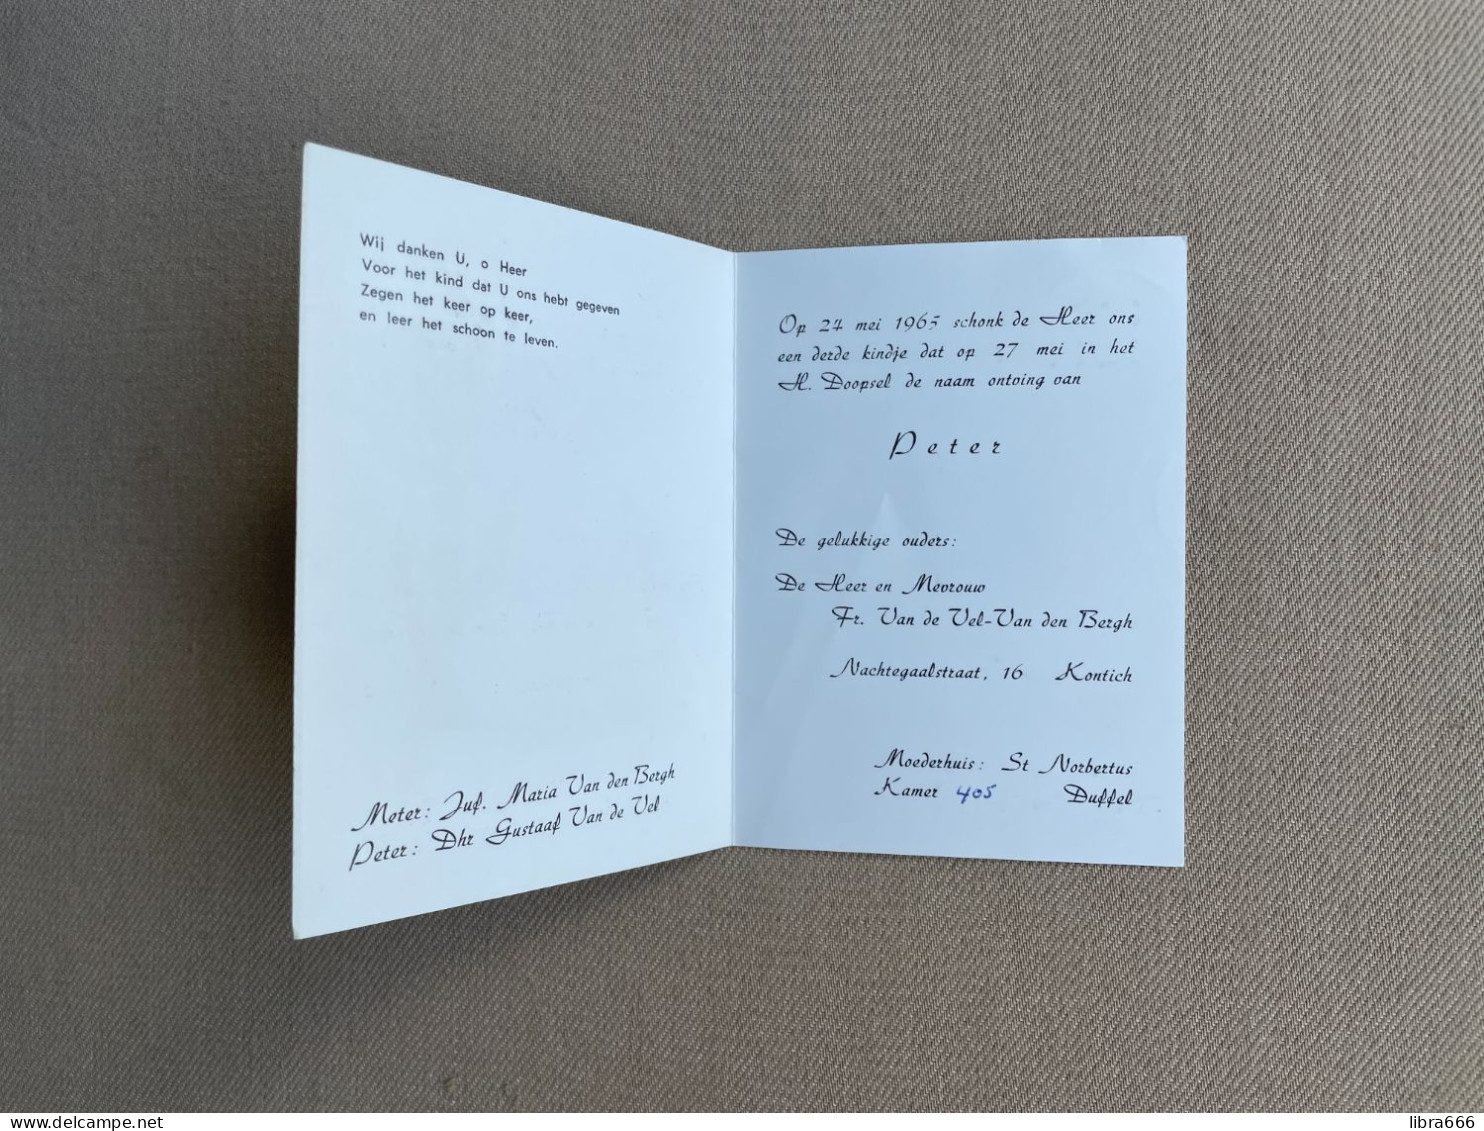 Wij danken U, o Heer
Voor het kind dat U ons hebt gegeven
Zegen het keer op keer,
en leer het schoon te leven.
Meter: Juf. Maria Van den Bergh
Peter: Dhr Gustaaf Van de Vel
Op 24 mei 1965 schonk de Heer ons
een derde kindje dat op 27 mei in het
H. Doopsel de naam ontving van
Peter
De gelukkige ouders:
De Heer en Mevrouw
Fr. Van de Vel-Van den Bergh
Nachtegaalstraat, 16 Kontich
Moederhuis: St Norbertus
Kamer 405 Duffel
delcampe.net
libra666